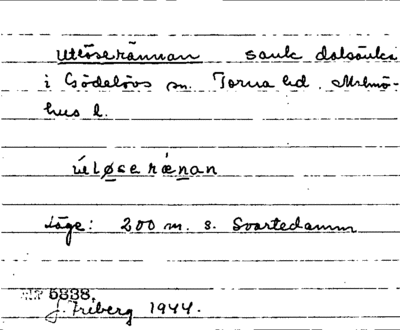 Utlöserännan sank dalsänka
i Gödelövs sn. Torna hd. Malmö-
hus l.
ú́tløserǽnan
Läge: 200 m. s. Svartedamm
5838.
J. Friberg 1944.